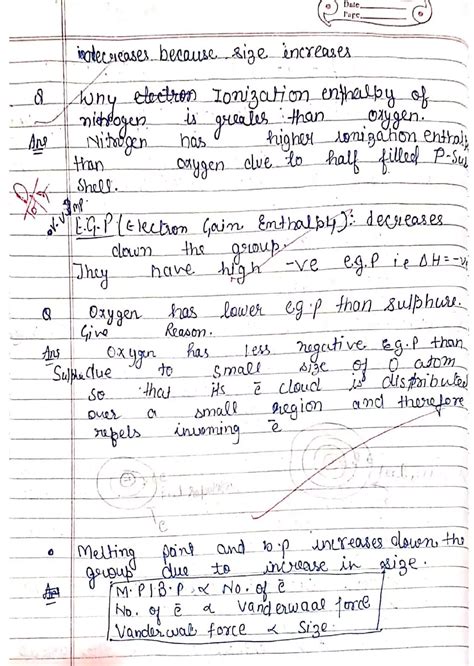 Date
Page
decreases because size increases
Q Why Ionization enthalpy of
nitrogen is greater than oxygen.
Ans Nitrogen has higher ionization enthalp
than oxygen due to half filled P-Sub
Shell.
V.V Imp
E.G.P (Electron Gain Enthalpy): decreases
down the group.
They have high -ve e.g.p i.e ΔH=-v
Q Oxygen has lower eg.p than sulphure.
Give Reason.
Ans Oxygen has less negative E.g.P than
Sulphur due to small size of O atom
so that its ē cloud is distributed
over a small region and therefore
repels incoming ē
Melting point and b.p increases down the
group due to increase in size.
Ans M.P|B.P ∝ No. of ē
No. of ē ∝ Vanderwaal force
Vanderwal force ∝ Size.